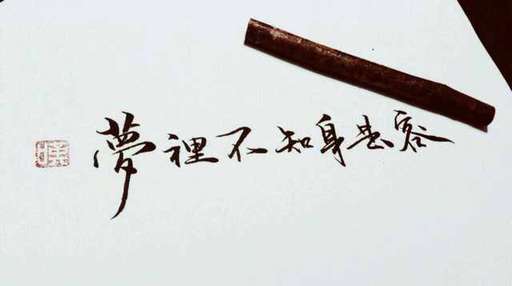 夢裡不知身是客